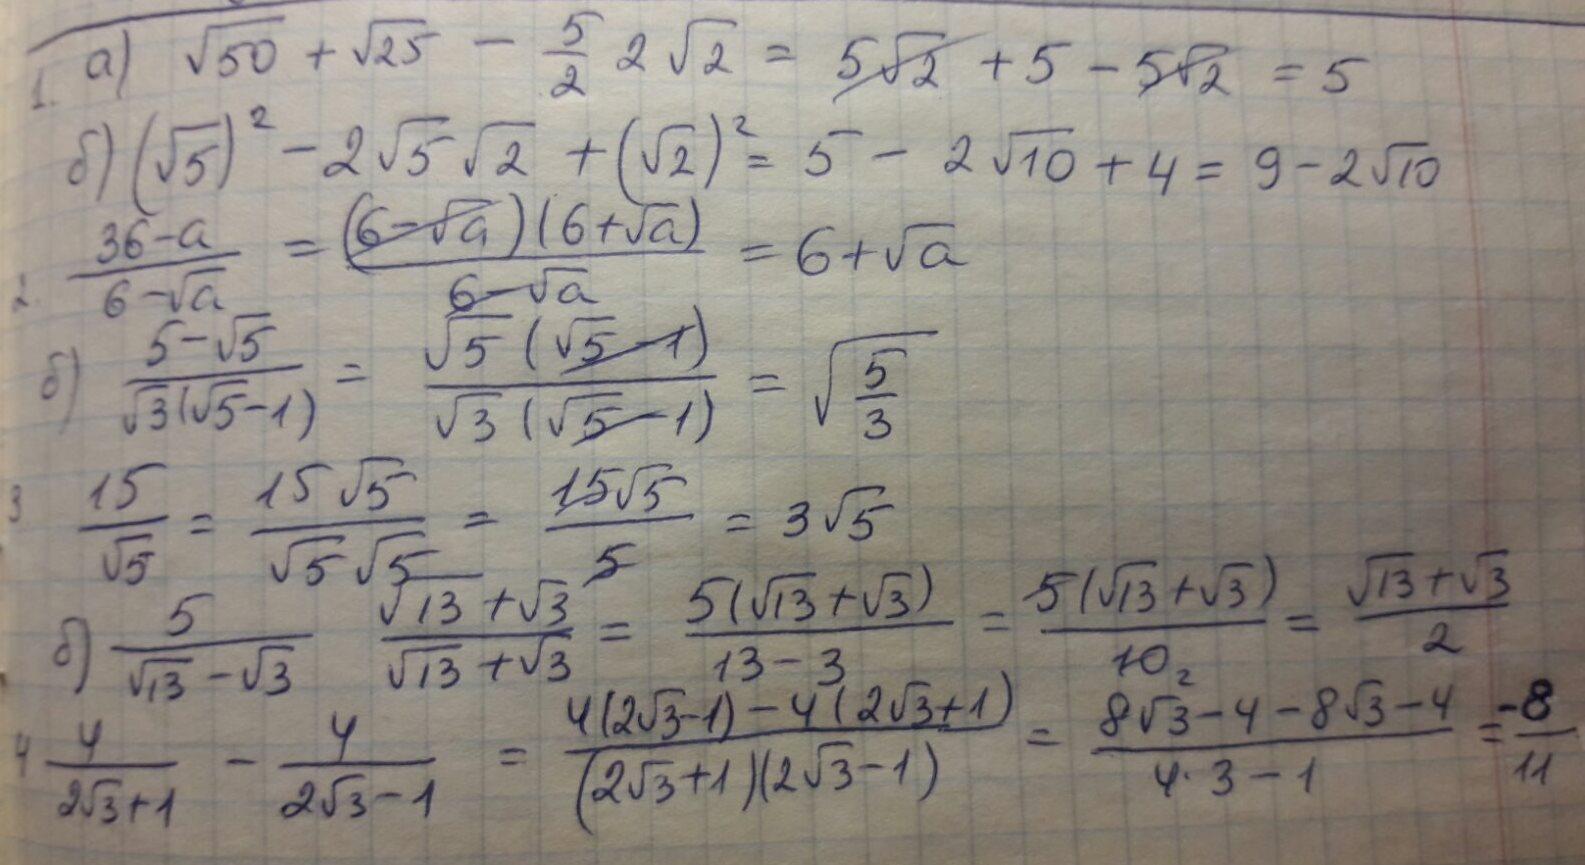 1. а) √50 + √25 − 5/2 2√2 = 5√2 + 5 − 5√2 = 5
б) (√5)² − 2√5 √2 + (√2)² = 5 − 2√10 + 4 = 9 − 2√10
2. 36−a / 6−√a = (6−√a)(6+√a) / 6−√a = 6+√a
б) 5−√5 / √3(√5−1) = √5(√5−1) / √3(√5−1) = √5/3
3 15/√5 = 15√5 / √5√5 = 15√5 / 5 = 3√5
б) 5 / √13−√3 √13+√3 / √13+√3 = 5(√13+√3) / 13−3 = 5(√13+√3) / 10 2 = √13+√3 / 2
4 4 / 2√3+1 − 4 / 2√3−1 = 4(2√3−1)−4(2√3+1) / (2√3+1)(2√3−1) = 8√3−4−8√3−4 / 4·3−1 = −8/11